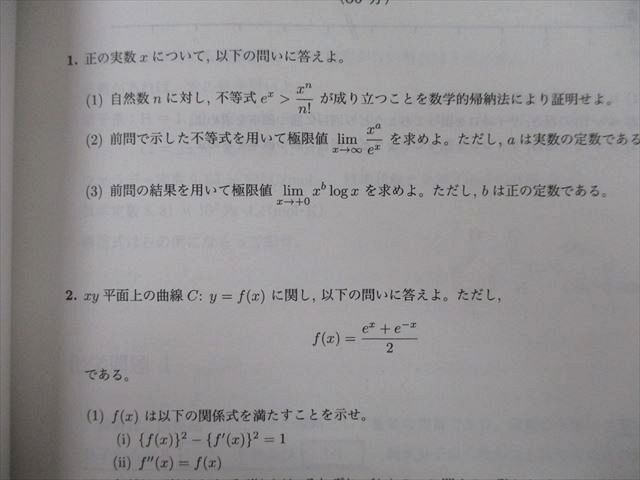 1. 正の実数 x について, 以下の問いに答えよ。
(1) 自然数 n に対し, 不等式 e^x > x^n/n! が成り立つことを数学的帰納法により証明せよ。
(2) 前問で示した不等式を用いて極限値 lim_{x→∞} x^a/e^x を求めよ。ただし, a は実数の定数である
(3) 前問の結果を用いて極限値 lim_{x→+0} x^b log x を求めよ。ただし, b は正の定数である。
2. xy 平面上の曲線 C: y = f(x) に関し, 以下の問いに答えよ。ただし,
f(x) = (e^x + e^{-x})/2
である。
(1) f(x) は以下の関係式を満たすことを示せ。
(i) {f(x)}^2 − {f′(x)}^2 = 1
(ii) f″(x) = f(x)